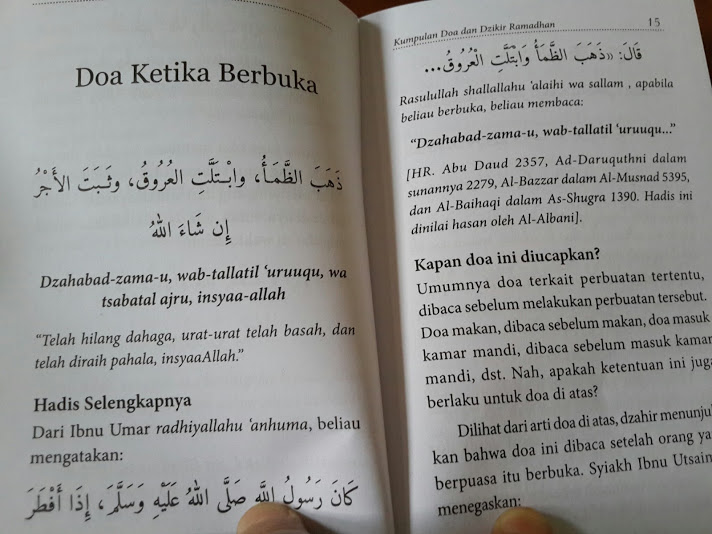 Doa Ketika Berbuka
ذَهَبَ الظَّمَأُ، وابْتَلَّتِ العُرُوقُ، وثَبَتَ الأَجْرُ
إِن شَاءَ اللهُ
Dzahabad-zama-u, wab-tallatil ‘uruuqu, wa
tsabatal ajru, insyaa-allah
“Telah hilang dahaga, urat-urat telah basah, dan
telah diraih pahala, insyaaAllah.”
Hadis Selengkapnya
Dari Ibnu Umar radhiyallahu ‘anhuma, beliau
mengatakan:
كَانَ رَسُولُ اللَّهِ صَلَّى اللهُ عَلَيْهِ وَسَلَّمَ، إِذَا أَفْطَرَ
Kumpulan Doa dan Dzikir Ramadhan 15
قَالَ: «ذَهَبَ الظَّمَأُ وَابْتَلَّتِ الْعُرُوقُ...
Rasulullah shallallahu ‘alaihi wa sallam , apabila
beliau berbuka, beliau membaca:
“Dzahabad-zama-u, wab-tallatil ‘uruuqu...”
[HR. Abu Daud 2357, Ad-Daruquthni dalam
sunannya 2279, Al-Bazzar dalam Al-Musnad 5395,
dan Al-Baihaqi dalam As-Shugra 1390. Hadis ini
dinilai hasan oleh Al-Albani].
Kapan doa ini diucapkan?
Umumnya doa terkait perbuatan tertentu,
dibaca sebelum melakukan perbuatan tersebut.
Doa makan, dibaca sebelum makan, doa masuk
kamar mandi, dibaca sebelum masuk kamar
mandi, dst. Nah, apakah ketentuan ini juga
berlaku untuk doa di atas?
Dilihat dari arti doa di atas, dzahir menunjuk
kan bahwa doa ini dibaca setelah orang ya
berpuasa itu berbuka. Syiakh Ibnu Utsain
menegaskan: